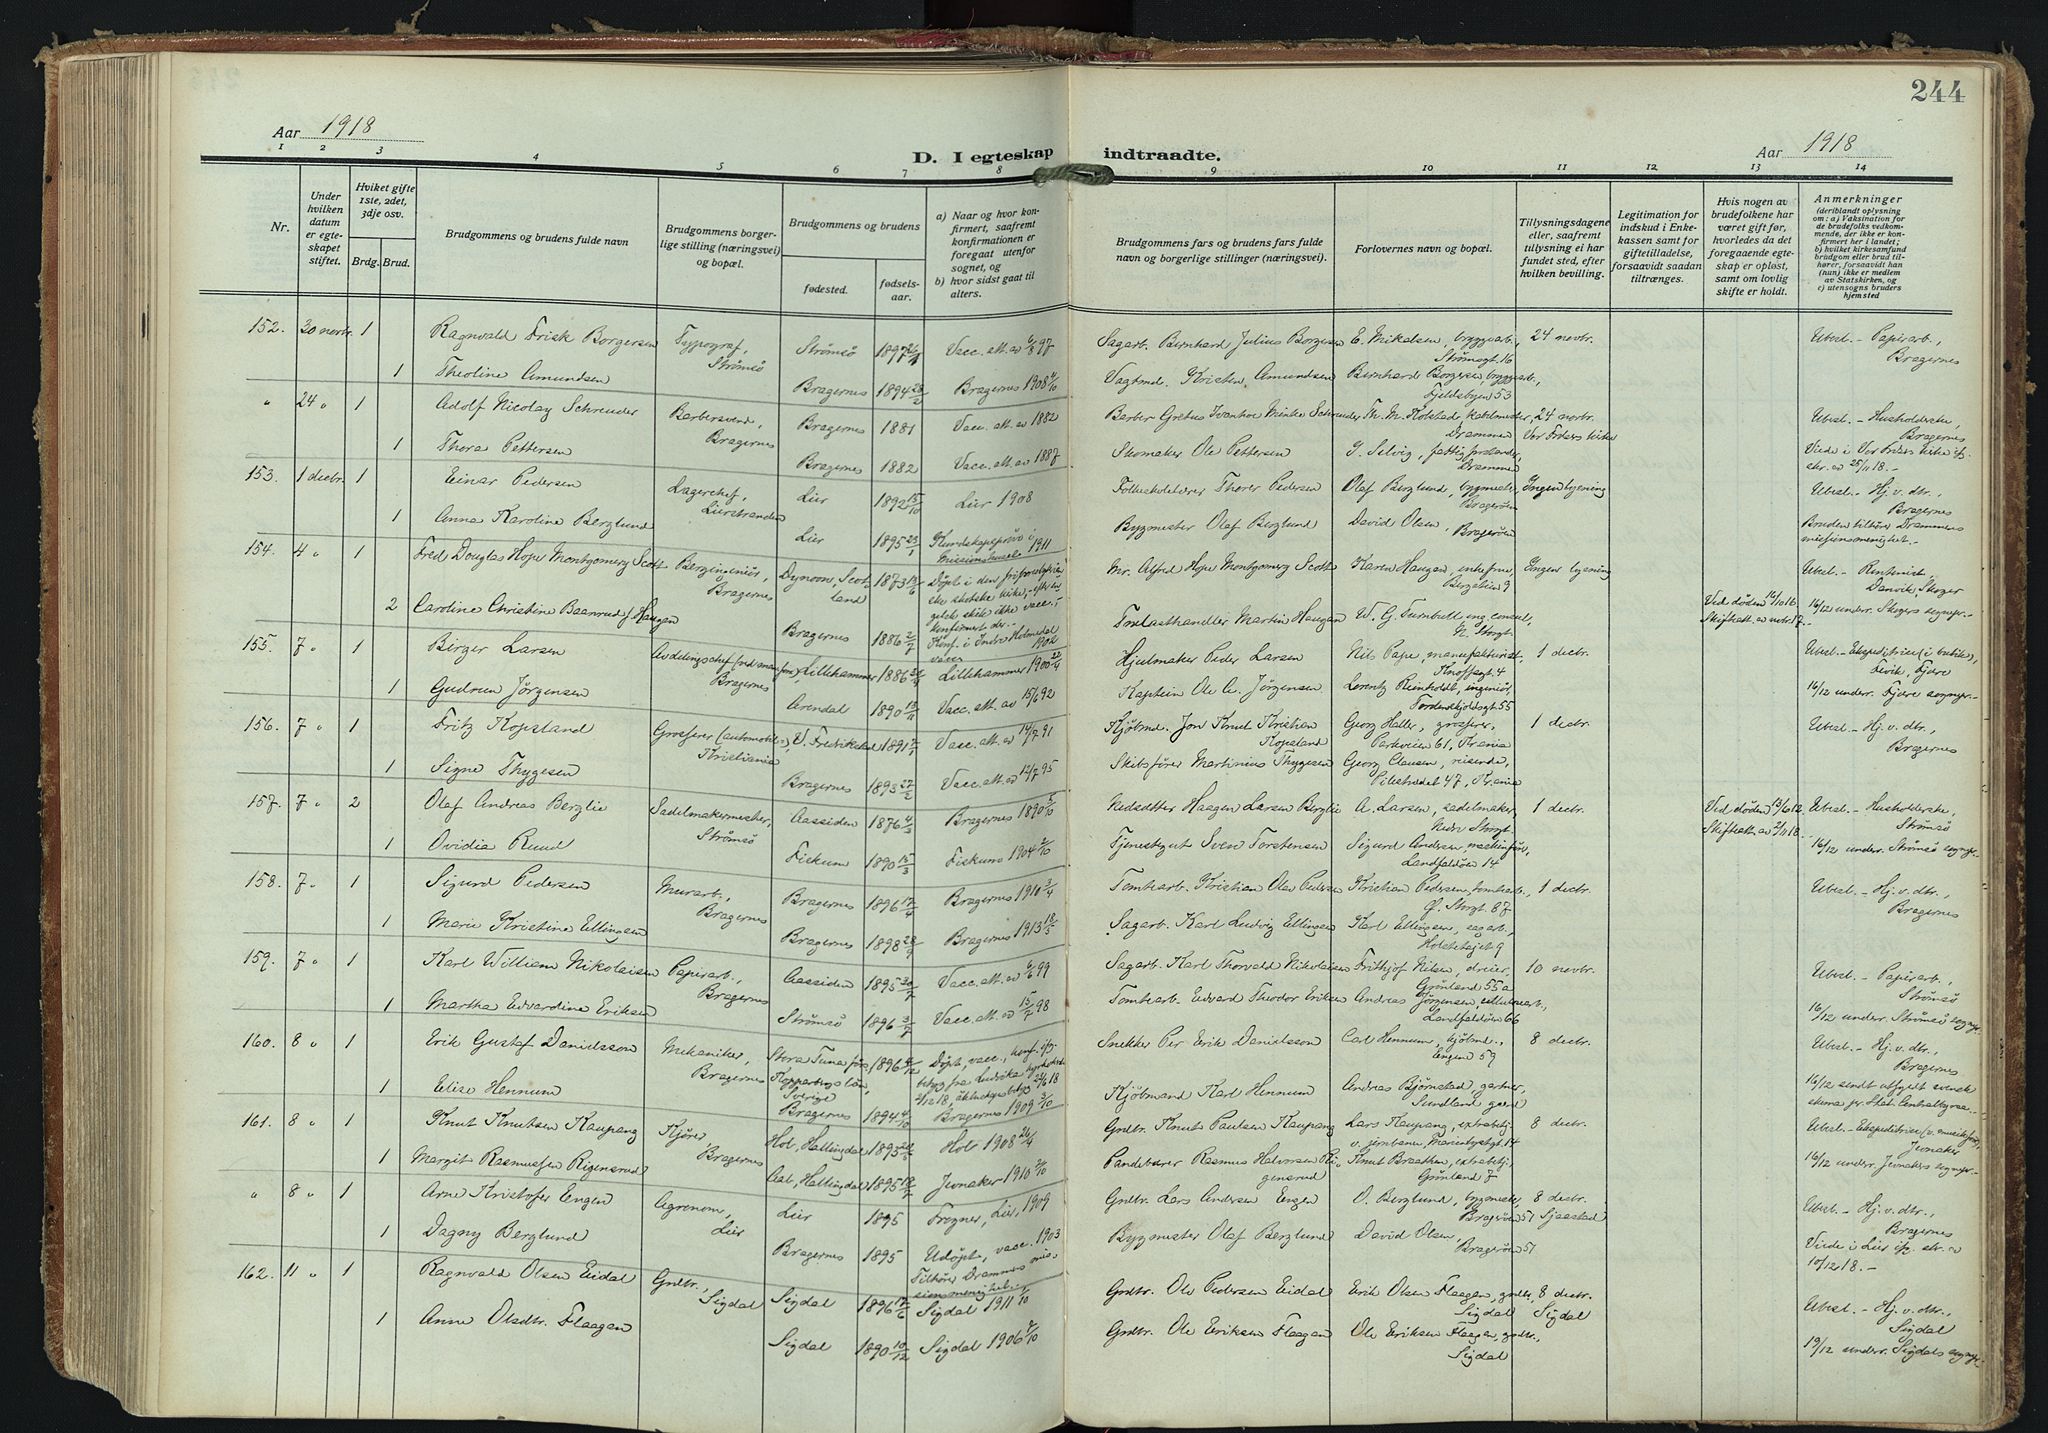 244
Aar 1918
Aar 1918
D. I egteskap indtraadte.
1 2 3 4 5 6 7 8 9 10 11 12 13 14
Nr.
Under hvilken datum er egteskapet stiftet.
Hviket gifte 1ste, 2det, 3dje osv.
Brdg. Brud.
Brudgommens og brudens fulde navn
Brudgommens borgerlige stilling (næringsvei) og bopæl.
Brudgommens og brudens
fødested.
fødselsaar.
a) Naar og hvor konfirmert, saafremt konfirmationen er foregaat utenfor sognet, og
b) hvor sidst gaat til alters.
Brudgommens fars og brudens fars fulde navn og borgerlige stillinger (næringsvei).
Forlovernes navn og bopæl.
Tillysningsdagene eller, saafremt tillysning ei har fundet sted, efter hvilken bevilling.
Legitimation for indskud i Enkekassen samt for giftetilladelse, forsaavidt saadan tiltrænges.
Hvis nogen av brudefolkene har været gift før, hvorledes da det foregaaende egteskap er opløst, samt om lovlig skifte er holdt.
Anmerkninger
(deriblandt oplysning om: a) Vaksination for de brudefolks vedkommende, der ikke er konfirmert her i landet; b) hvilket kirkesamfund brudgom eller brud tilhører, forsaavidt han (hun) ikke er medlem av Statskirken, og c) utensogns bruders hjemsted
152. 30 novbr. 1 Ragnvald Frisk Borgersen Typograf, Strømsø Strømsø 1897 Vacc. att. av 6/8 97 Sagarb. Bernhard Julius Borgersen E. Mikalsen, bryggearb., Strømsgt. 16 24 novbr. Ubesl. - Papirarb., Bragernes
1 Theoline Amundsen Bragernes 1894 28/2 Bragernes 1908 4/10 Vagtmd. Kristen Amundsen Bernhard Borgersen, bryggearb., Fjeldsbyen 53
" 24 " 1 Adolf Nicolay Schreuder Barbersvend, Bragernes Bragernes 1881 Vacc. att. av 1882 Barber Gretus Ivanhoe Minke Schreuder Th. M. Kolstad, Drammen 24 novbr. Vor Frelsers kirke Ubesl. - Husholderske, Bragernes
1 Thora Pettersen Bragernes 1882 Vacc. att. av 1887 Skomaker Ole Pettersen J. Selvig, fattigforstander, Drammen Viede i Vor Frelsers kirke ifl. skr. av 25/11 18.
153. 1 decbr. 1 Einar Pedersen Lagerchef, Lierstranden Lier 1892 15/10 Lier 1908 Folkeskolelærer Thorer Pedersen Olaf Berglund, bygmester, Bragerøen Ingen lysning Ubesl. - Hj. v. dtr., Bragernes
1 Anna Karoline Berglund Lier 1895 23/1 Kundskapsprøve i Missionshuset 1911 Bygmester Olaf Berglund David Olsen, Bragerøen Bruden tilhører Drammens missionsmenighet.
154. 4 " 1 Fred Douglas Hope Montgomery Scott Bergingeniør, Bragernes Dynoon, Scotland 1873 13/6 Døpt i den fripresbyterianske skotske kirke, - efter engelsk skik ikke vacc., konfirmert der. Mr. Alfred Hope Montgomery Scott Karen Haugen, enkefrue, Bergstien 9 Ingen lysning Ubesl. - Rentenist, Danvik, Skoger
2 Caroline Christine Baanrud f. Haugen Bragernes 1886 2/7 Konf. i Indre Holmedal 1902 Trælasthandler Martin Haugen W. G. Turnbull eng. consul, N. Storgt. Ved døden 16/10 16 Skifteatt. av novbr. 17. 16/12 underr. Skogers sognepr. -
155. 7 " 1 Birger Larsen Avdelingschef (ved manufact.) Bragernes Lillehammer 1886 Lillehammer 1900 22/4 Hjulmaker Peder Larsen Nils Pape, manufakturist, Knoffsgt. 4 1 decbr. Ubesl. - Ekspeditrice (i butik), Fevik, Fjære
1 Gudrun Jørgensen Arendal 1890 13/11 Vacc. att. av 15/6 92 Kaptein Ole C. Jørgensen Lorentz Reinholdt, ingeniør, Tordenskjoldsgt. 55 16/12 underr. Fjære sognepr. -
156. 7 " 1 Fritz Kopsland Grosserer (automobiler), Kristiania V. Fredrikstad 1891 Vacc. att. av 14/7 91 Kjøbmd. Jon Knut Kristian Kopsland Georg Haller, grosserer, Parkveien 61, Krania 1 decbr. Ubesl. - Hj. v. dtr., Bragernes
1 Signe Thygesen Bragernes 1893 27/2 Vacc. att. av 12/7 95 Skibsfører Martinius Thygesen Georg Clausen, reisende, Pilestrædet 47, Krania
157. 7 " 2 Olaf Andreas Berglie Sadelmakermester, Strømsø Aassiden 1876 4/3 Bragernes 1890 5/10 Nedsætter Haagen Larsen Berglie A. Larsen, sadelmaker, Nedre Storgt. 1 decbr. Ved døden 13/6 12 Skifteatt. av 2/11 18. - Ubesl. - Husholderske, Strømsø
1 Ovidia Ruud Fiskum 1890 15/3 Fiskum 1904 2/10 Tjenestegut Sven Torstensen Sigurd Andersen, maskinfører, Landfaldøen 14 16/12 underr. Strømsø sognepr.
158. 7 " 1 Sigurd Pedersen Murarb., Bragernes Bragernes 1896 17/4 Bragernes 1910 3/4 Tomtearb. Kristian Olav Pedersen Kristian Pedersen, tomtearb., Ø. Storgt. 87 1 decbr. Ubesl. - Hj. v. dtr., Bragernes
1 Marie Kristine Ellingsen Bragernes 1898 28/9 Bragernes 1913 18/5 Sagarb. Karl Ludvig Ellingsen Karl Ellingsen, sagarb., 9
159. 7 " 1 Karl William Nikolaisen Papirarb., Bragernes Aassiden 1895 30/7 Vacc. att. av 6/6 99 Sagarb. Karl Thorvald Nikolaisen Frithjof Nilsen, dreier, Grønland 55a 10 novbr. Ubesl. - Papirarb., Strømsø
1 Martha Edvardine Eriksen Strømsø 1896 3/7 Vacc. att. av 15/7 98 Tomtearb. Edvard Theodor Eriksen Andreas Jørgensen cellulosearb., Landfaldøen 66 16/12 underr. Strømsø sognepr.
160. 8 " 1 Erik Gustaf Danielsson Mekaniker, Bragernes Stora Tuna förs. Kopparbergs län, Sverige 1896 Døpt, vacc., konf. ifg. betyg fra Ludvika 2/12 18, Snekker Per Erik Danielsson Carl Hennum, kjøbmd., Engene 59 8 decbr. Ubesl. - Hj. v. dtr., Bragernes
1 Elise Hennum Bragernes 1894 4/10 Bragernes 1909 3/10 Kjøbmand Karl Hennum Andreas Bjørnstad, gartner, Sundland gaard 16/12 sendt utfyldt svensk skema pr. Stat. Centralbyraa. -
161. 8 " 1 Knut Knutsen Kaupang Kjører, Bragernes Hol, Hallingdal 1895 Hol 1908 26/4 Grdbr. Knut Paulsen Kaupang Lars Kaupang, extrabetj. v. jernbanen, Marienlystgt. 14 8 decbr. Ubesl. - Ekspeditrice (v. musikforr.), Jevnaker
1 Margit Rasmussen Rigensrud Aal, Hallingdal 1895 Jevnaker 1910 2/10 Pandebærer Rasmus Halvorsen Rigensrud Knut Braatten, extrabetj., Grønland 7 16/12 underr. Jevnakers sognepr. -
" 8 " 1 Arne Kristofer Engen Agronom, Lier Lier 1895 Frogner, Lier, 1909 Grdbr. Lars Andersen Engen O. Berglund, bygmester, Bragerøen 51 8 decbr. Sjaastad Ubesl. - Hj. v. dtr., Bragernes
1 Dagny Berglund Bragernes 1895 Udøpt, vacc. 1903 Tilhører Drammens missionsmenighet Bygmester Olaf Berglund David Olsen, Bragerøen 51 Viede i Lier ifg. skr. av 10/12 18. -
162. 11 " 1 Ragnvald Olsen Eidal Grdbr., Sigdal Sigdal 1896 17/6 Sigdal 1911 1/10 Grdbr. Ole Pedersen Eidal Erik Olsen Flaagen, grdbr., Sigdal 8 decbr. Sigdal Ubesl. - Hj. v. dtr., Sigdal
1 Anne Olsdtr. Flaagen Sigdal 1890 10/12 Sigdal 1906 7/10 Grdbr. Ole Eriksen Flaagen Ole Eriksen Flaagen, grdbr., Sigdal 19/12 underr. Sigdals sognepr. -